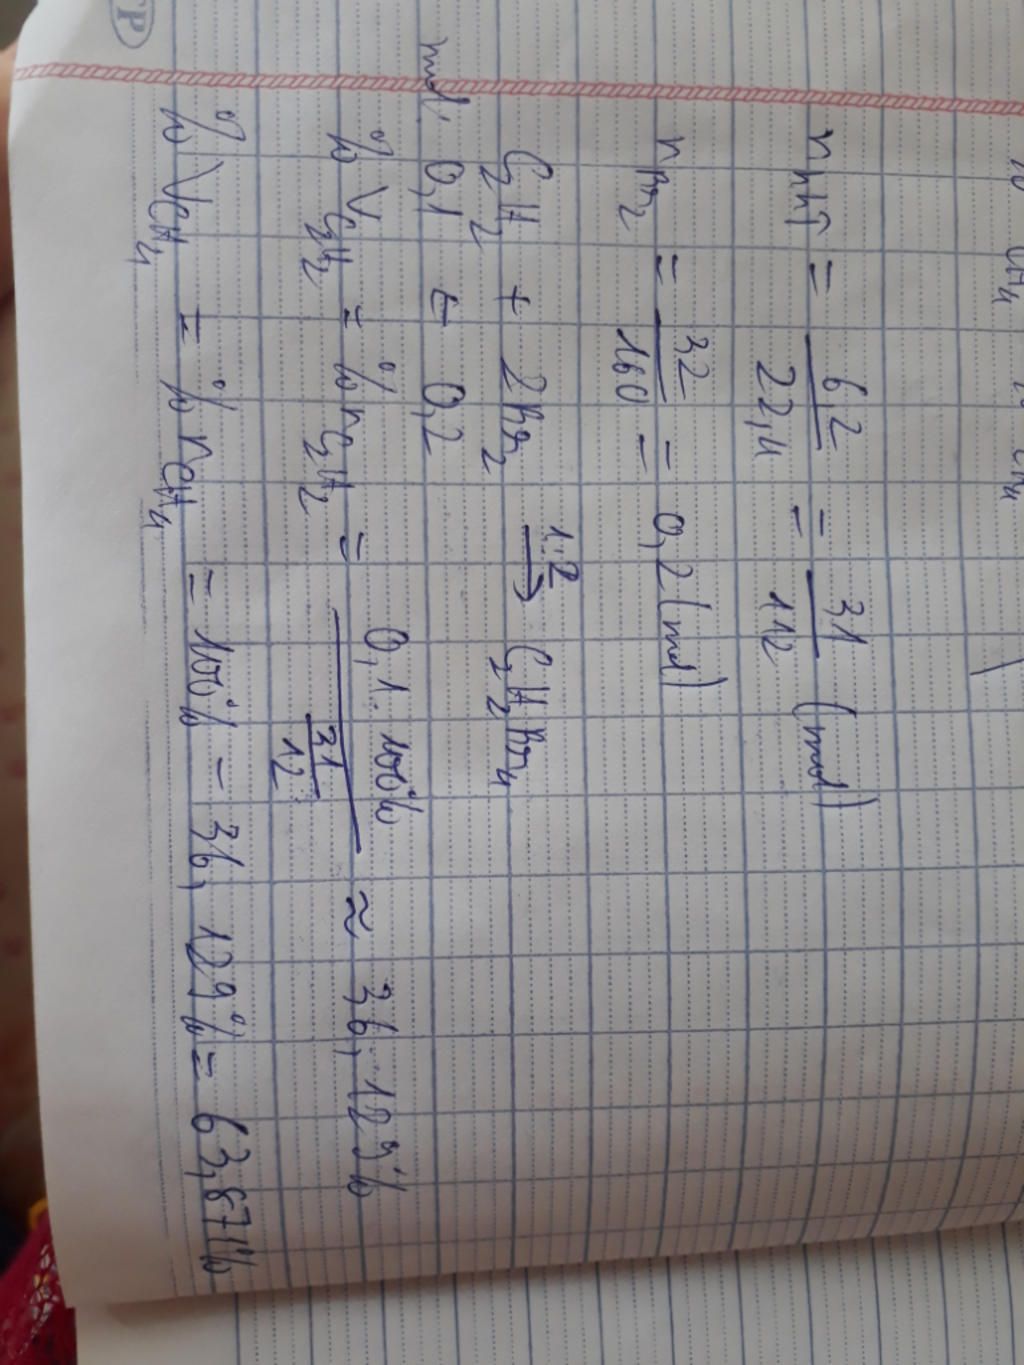 n hh↑ = 6,2/22,4 = 31/112 (mol)
n Br₂ = 32/160 = 0,2 (mol)
C₂H₂ + 2Br₂ —1:2→ C₂H₂Br₄
mol: 0,1 ← 0,2
% V C₂H₂ = % n C₂H₂ = 0,1 . 100% / (31/12) ≈ 36,129%
% V CH₄ = % n CH₄ = 100% - 36,129% = 63,871%